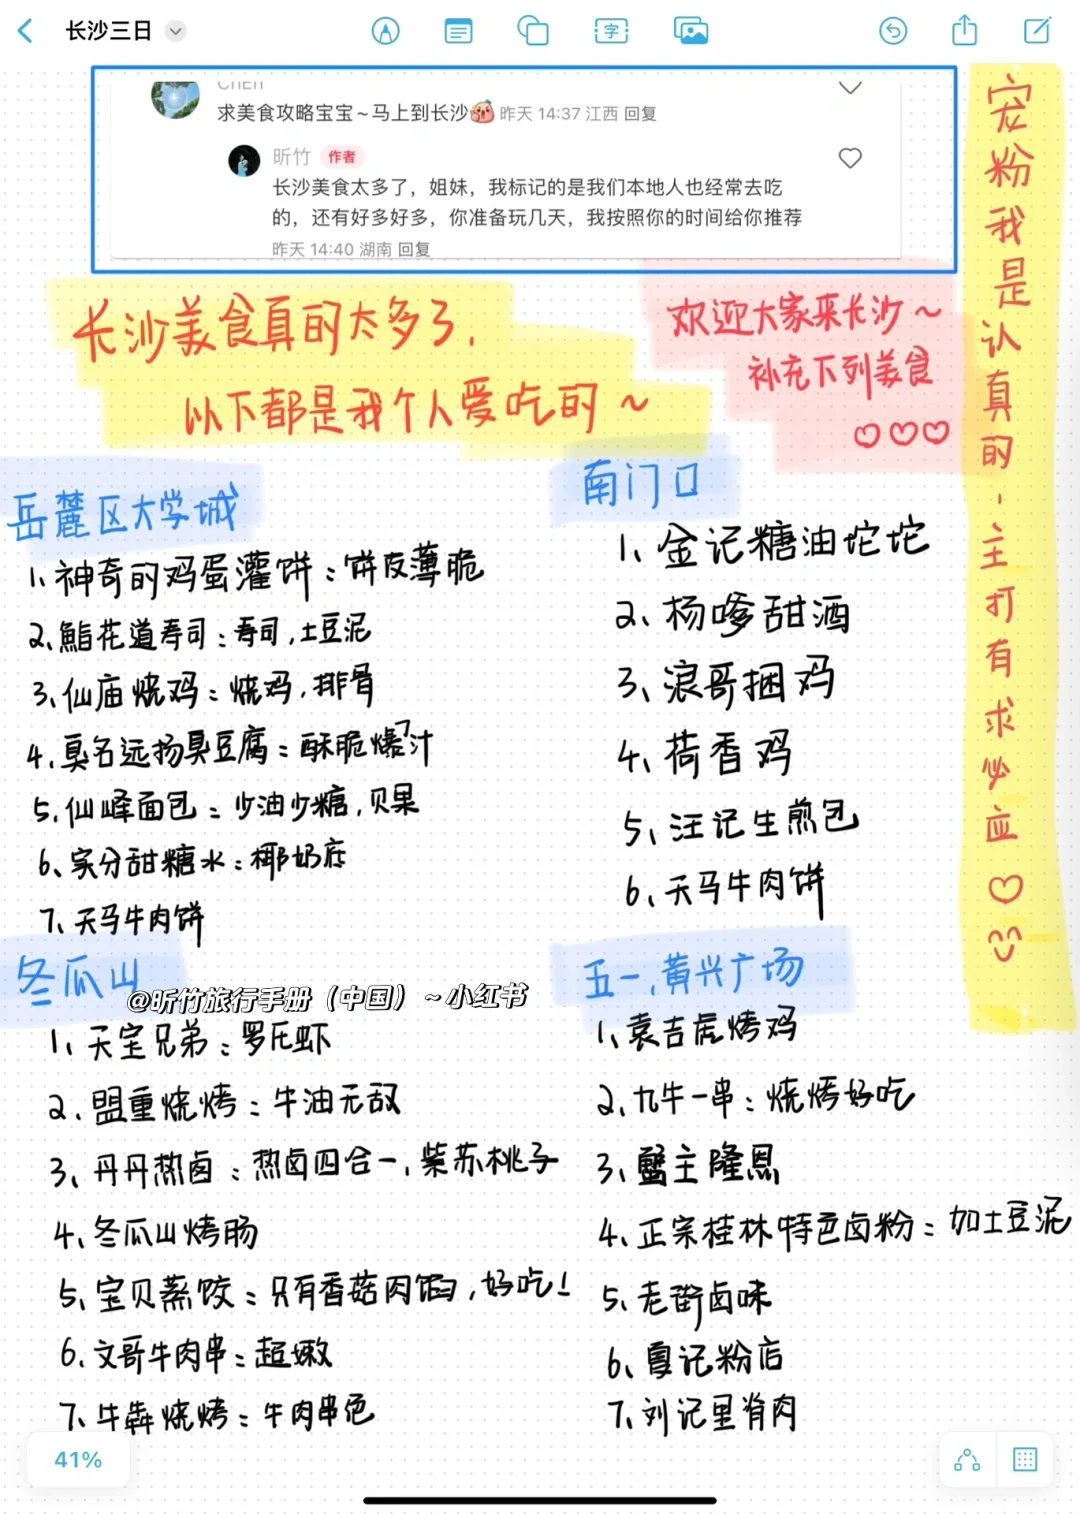 长沙三日
字
求美食攻略宝宝~马上到长沙 昨天 14:37 江西 回复
昕竹 作者
长沙美食太多了，姐妹，我标记的是我们本地人也经常去吃
的，还有好多好多，你准备玩几天，我按照你的时间给你推荐
昨天 14:40 湖南 回复
宠粉我是认真的，主打有求必应♡
长沙美食真的太多了，
以下都是我个人爱吃的~
欢迎大家来长沙~
补充下列美食
♡♡♡
岳麓区大学城
1、神奇的鸡蛋灌饼：饼皮薄脆
2、鮨花道寿司：寿司，土豆泥
3、仙庙烧鸡：烧鸡，排骨
4、臭名远扬臭豆腐：酥脆爆汁
5、仙峰面包：少油少糖，贝果
6、实分甜糖水：椰奶底
7、天马牛肉饼
南门口
1、金记糖油坨坨
2、杨嗲甜酒
3、浪哥捆鸡
4、荷香鸡
5、汪记生煎包
6、天马牛肉饼
冬瓜山
@昕竹旅行手册（中国）~小红书
1、天宝兄弟：罗氏虾
2、盟重烧烤：牛油无敌
3、丹丹热卤：热卤四合一，紫苏桃子
4、冬瓜山烤肠
5、宝贝蒸饺：只有香菇肉馅，好吃！
6、文哥牛肉串：超嫩
7、牛犇烧烤：牛肉串绝
五一、黄兴广场
1、袁吉虎烤鸡
2、九牛一串：烧烤好吃
3、蟹主隆恩
4、正宗桂林特色卤粉：加土豆泥
5、老街卤味
6、夏记粉店
7、刘记里脊肉
41%